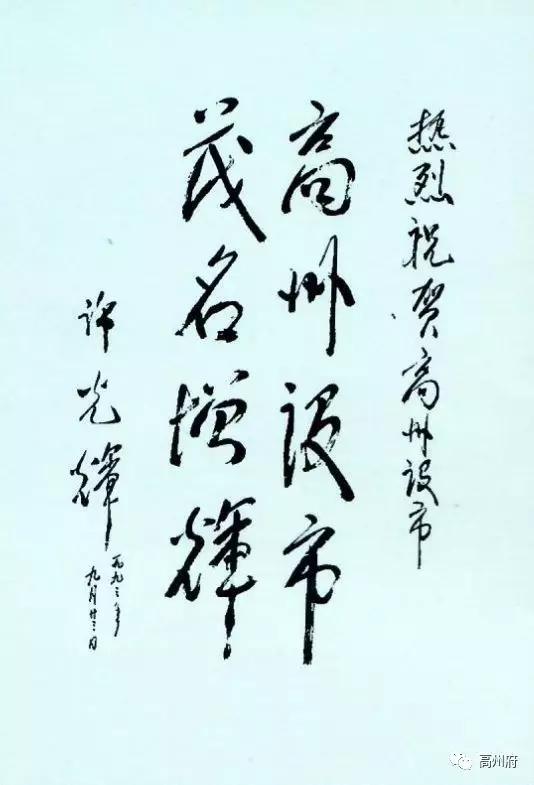 热烈祝贺高州设市
高州设市
茂名增辉
许光辉
一九九三年
九月廿三日
高州府